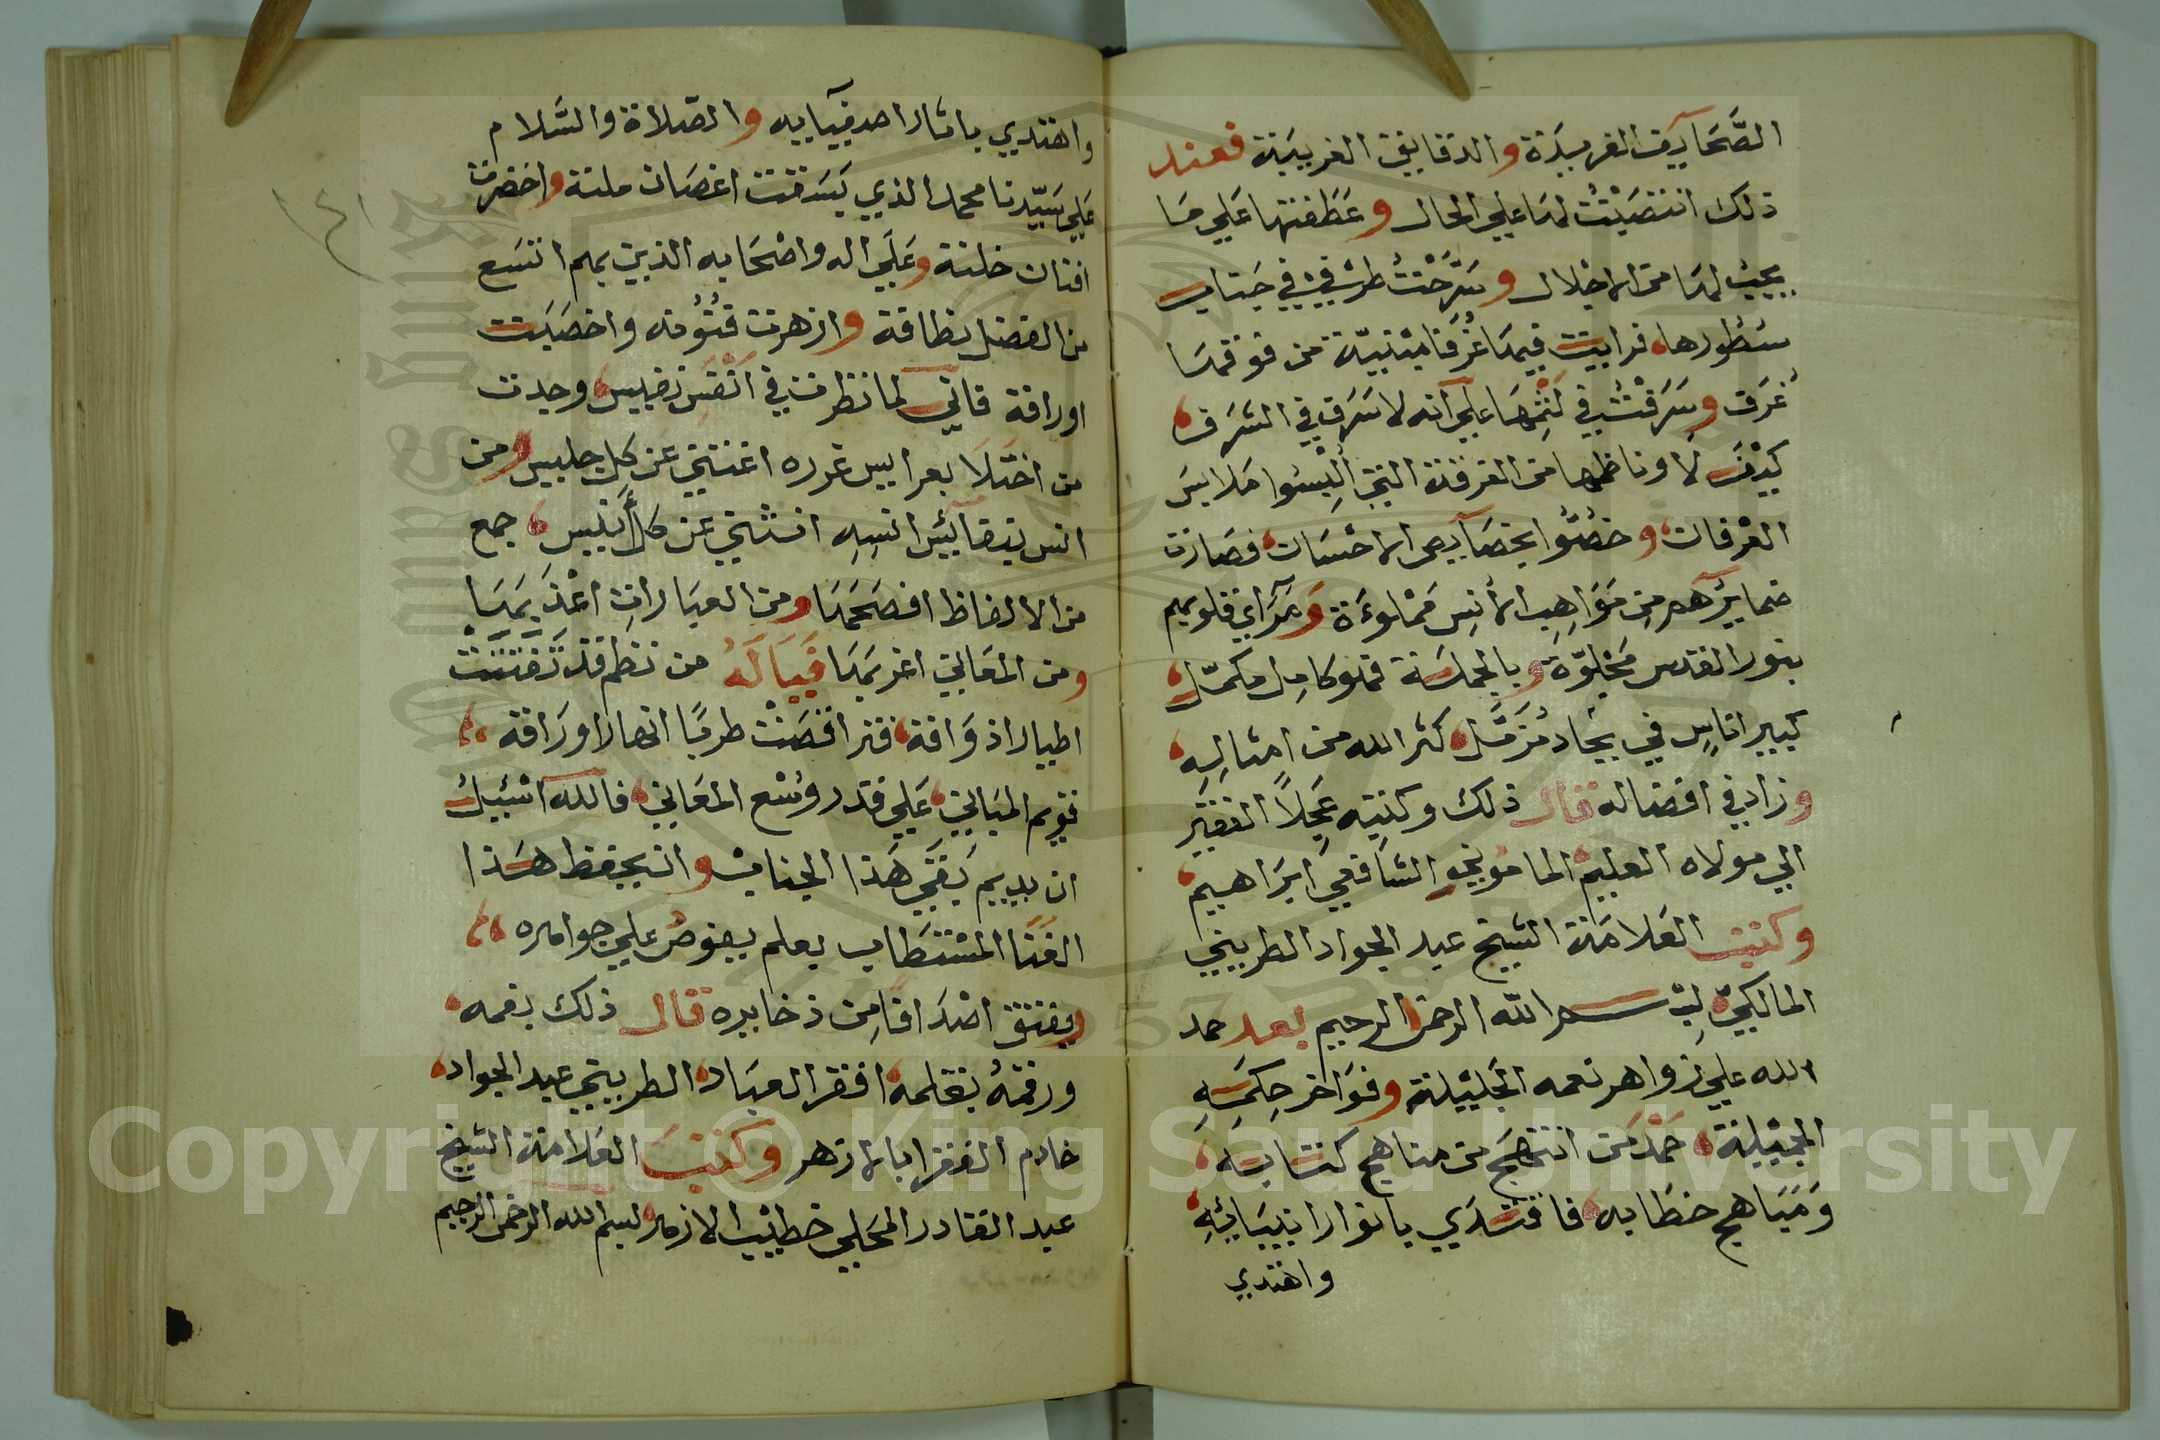 الصَّحَايَف الفريدَة والدقايق الغريبَة فعند
ذلك انتصَبْتُ لهَا علي الحال وعَطَفتها عَلي مَا
يجبُ لهَا من الاجلال وسَرَّحْتُ طرْفي في جَناب
سُطُورها فرايت فيهَا غُرَفا مبْنيّة من فوقهَا
غُرَف وسَرَفْتُ في لَثْمِهَا علي انه لا سَرَف في الشرَف
كيْفَ لا وناظمها من الفرقة التي اُلْبِسُوا مَلابسَ
العْرفان وخصُّوا بخصَآيص الاحْسَان فصَارت
ضمايرُهم مِن مَوَاهِب الأنس مَمْلوءَة وَمَرَآي قلوبهم
بنور القدس مَجْلوّة وبالجملَة فهو كامل مكمّل
كبير اناسٍ في بجَاد مُزَمَّل كثر الله من امثالِهِ
وزاد في افضاله قال ذلك وكتبه عَجِلاً الفقير
الي مولاه العليم الماموني الشافعي ابرَاهيم
وكتب العَلامَة الشيخ عبد الجواد الطريني
المالكي بسم الله الرحمن الرحيم بعد حمد
الله علي زواهر نعمه الجَليْلة وفوَاخر حِكمَهِ
الجميْلة حَمْدَ من انتهَجَ من مناهج كتابه
وَمَبَاهج خطَابه فاقتدَي بانوار انبيَائهِ
واهتدي
واهتدي باثار اصفيايه والصّلاة والسَّلام
عَلي سَيّدنا محمد الذي بَسَقت اغصَان ملتة واخضرت
افنان خلتة وعَلَي اله واصْحَابه الذين بهم اتسَع
من الفضل نطاقة وازهرت فنُونه واخصَبَت
اوراقة فاني لما نظرت في انْفَس نفيس وجدت
من اختَلا بعرايس غرره اغنتني عن كل جليس ومن
انس بنفايس انسِهِ انسْتني عن كل أنيس جمع
من الالفاظ افصَحهَا ومن العبَارات اعْذَبهَا
ومن المعَاني اغربهَا فيَالَهُ من نظم قد تَفَنَنَتْ
اطيار اذوَاقة فتراقصَتْ طربًا ازهار اورَاقة
قويم المبَاني عَلي قدر وُسْع المعَاني فالله اسْئلُ
ان يديم بَقَي هَذا الجناب وان يحفظ هَذا
الفَنَا المسْتطَاب يعلم يغوص علي جواهره
وينفق اصْدَافا مِن ذخايره قال ذلك بفمه
ورقمهُ بقلمه افقر العبَاد الطريني عبد الجواد
خادم الفقرا بالازهر وكتب العَلامَة الشيخ
عبد القادر المحَلي خطيْب الازهر بسم الله الرحمن الرحيم
١٤١
Copyright © King Saud University